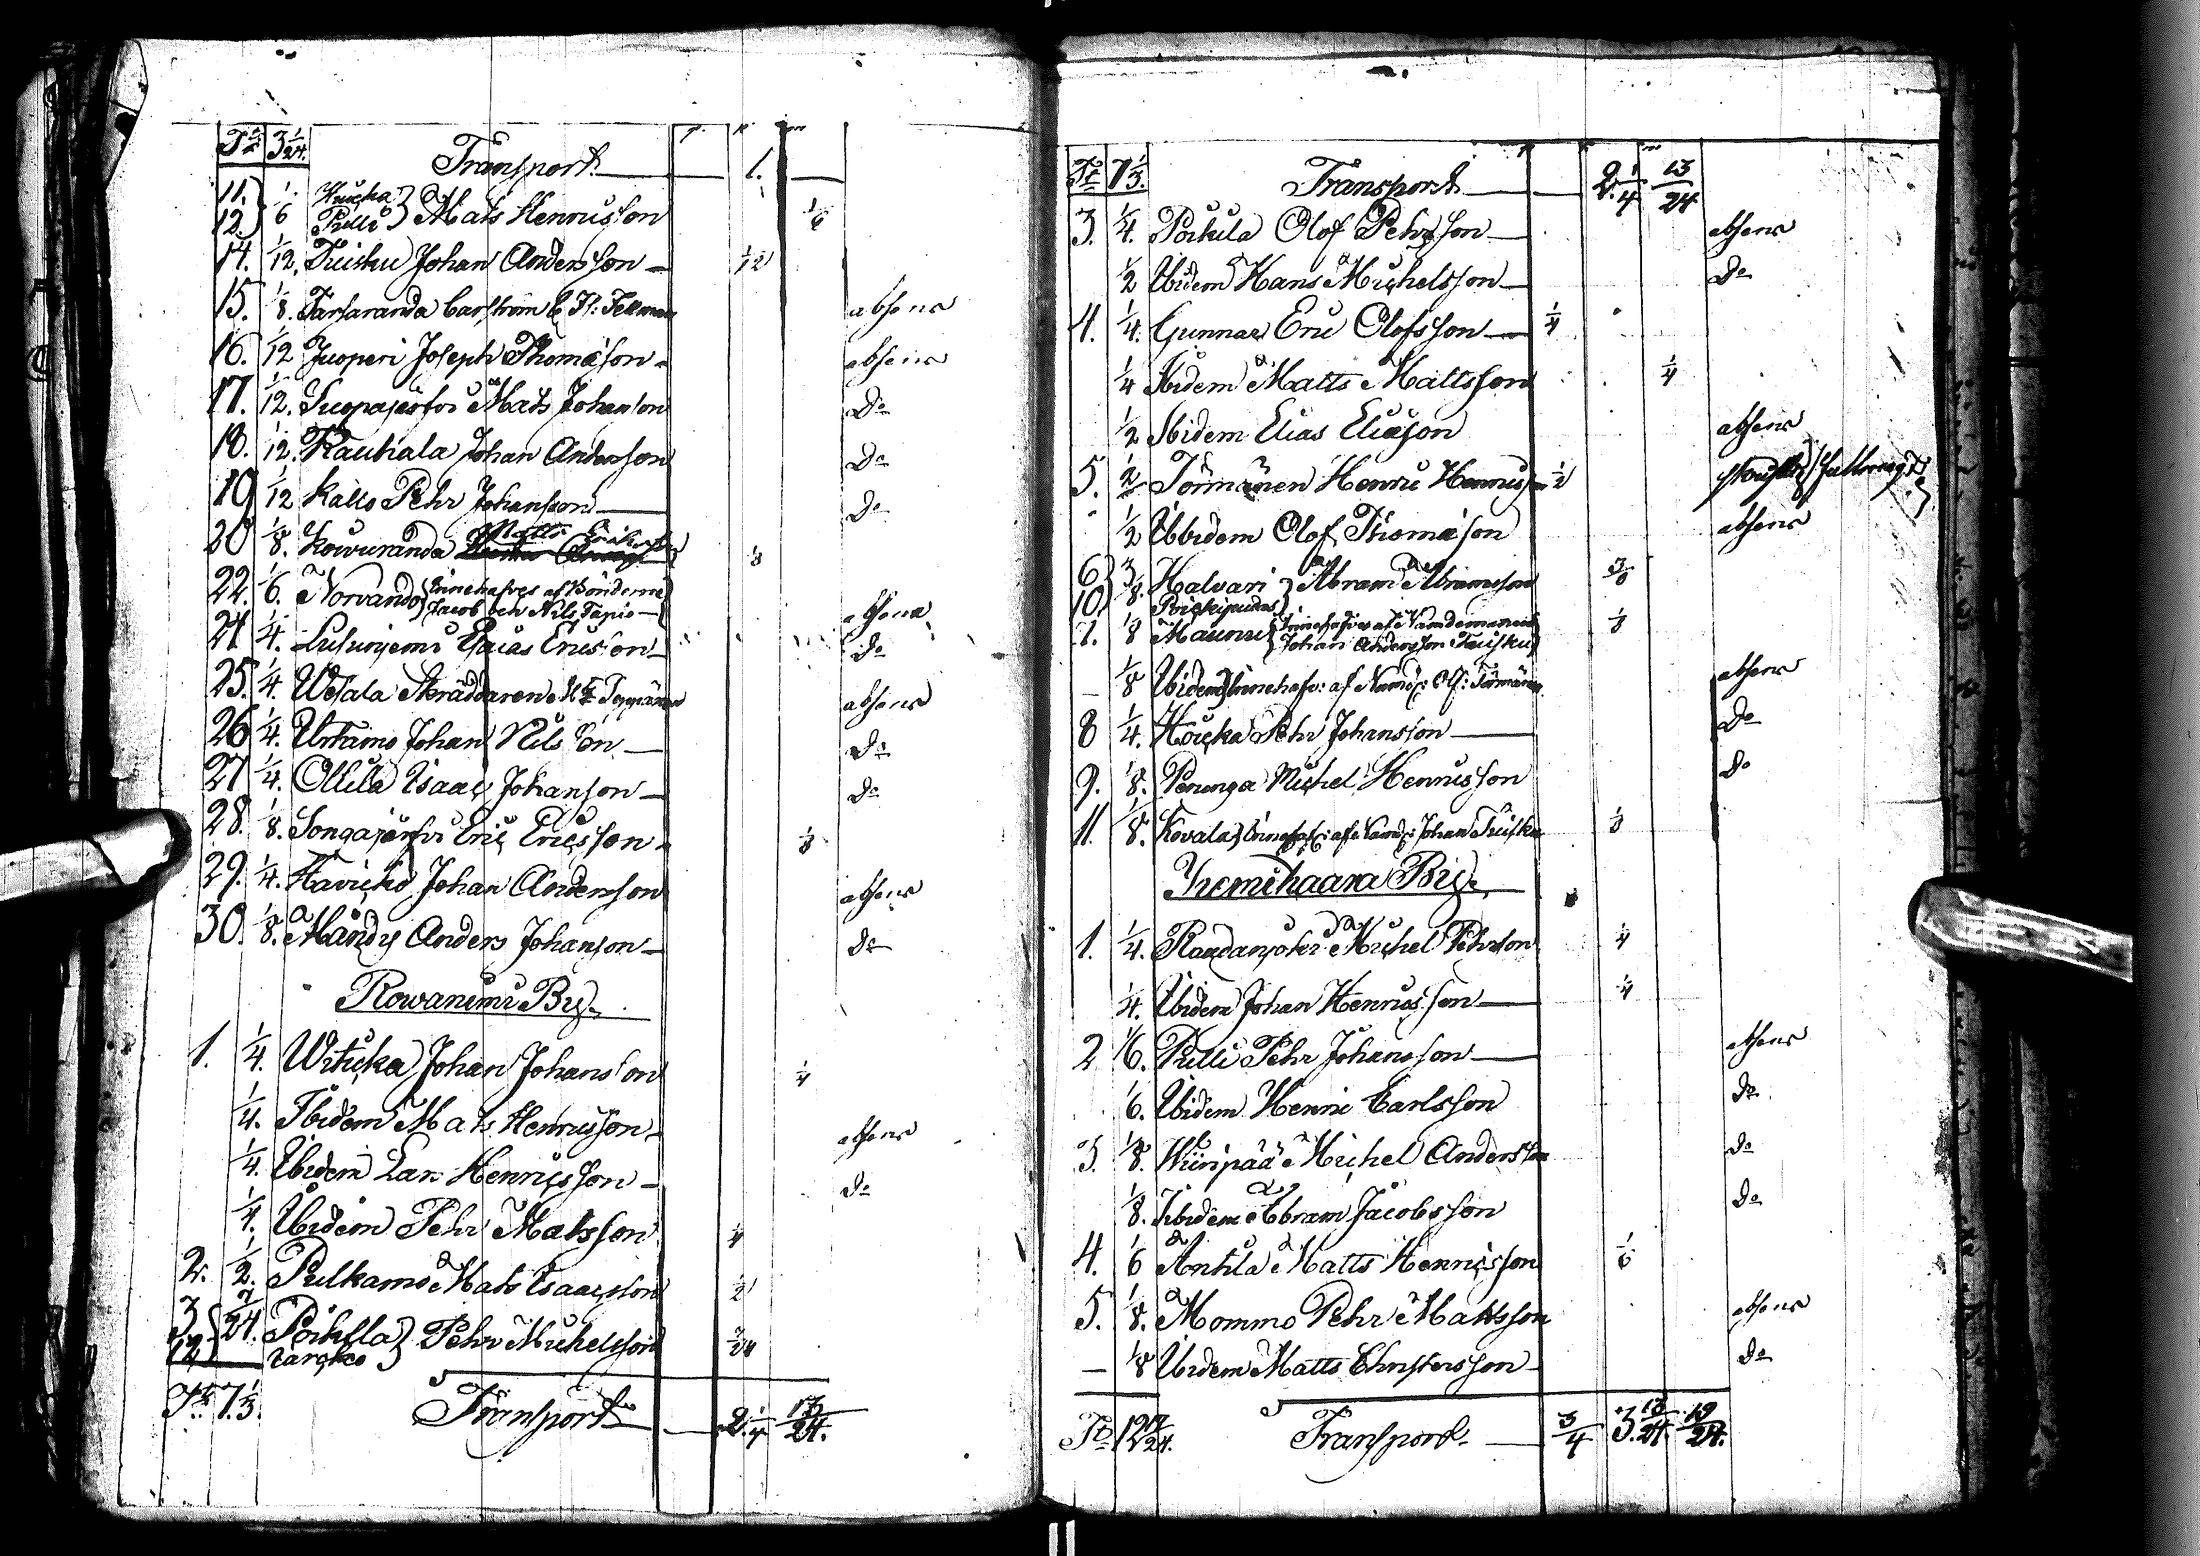 Tr. 3 1/24. Transport 1.
11. 12. 1/6 Kuuka Pulli Mats Henricsson 1/6
14. 1/12. Tuisku Johan Andersson 1/12
15. 1/8. Carlström absens
16. 1/12 Juoperi Joseph Thomasson absens
17. 1/12. Mats Johansson Do
18. 1/12. Rauhala Johan Andersson Do
19 1/12 Kallo Pehr Johansson Do
20 1/8. Kowuranda Matts 1/8
22. 1/6. Norvando innehafves af Bönderne
Jacob och Nils Tapio absens
24 1/4. Esaias Ericsson Do
25. 1/4. Wesala Skräddaren absens
26 1/4. Urtamo Johan Nilsson Do
27 1/4. Ollila Isaac Johanson Do
28. 1/8. Songajerfvi Eric Ericsson 1/8
29. 1/4. Haviko Johan Andersson absens
30. 1/8. Mändy Anders Johanson Do
Rowaniemi By
1. 1/4. Witicka Johan Johansson 1/4
1/4. Ibidem Mats Henricsson absens
1/4. Ibidem Lars Henricsson Do
1/4. Ibidem Pehr Matsson 1/4
2. 1/2. Pulkamo Mats Isaacsson 1/2
3 12 7/24. Poikela Pehr Michelsson 7/24
Tr. 7 1/3. Transport 2 1/4 13/24.
Tr. 7 1/3. Transport 2 1/4 13/24
3. 1/4. Poikela Olof Pehrsson absens
1/2 Ibidem Hans Michelsson Do
4. 1/4. Gunnar Eric Olofsson 1/4
1/4 Ibidem Matts Mattsson 1/4
1/2 Ibidem Elias Eliæson absens
5. 1/2 Törmänen Henric Henricsson 1/2
1/2 Ibidem Olof Thomasson absens
6 10 3/8. Halvari Abram Abramsson 3/8
7. 1/8 Maunu innehafves af Nämdemannen
Johan Andersson Tuisku 1/8
1/8 Ibidem innehafv: af Nämd: Ol: Törmänen absens
8 1/4. Houka Pehr Johansson Do
9. 1/8. Michel Henricsson Do
11 1/8. Kovala innehaf: af Nämd: Johan Tuisku 1/8
Kemihaara By
1. 1/4. Michel Pehrsson 1/4
1/4. Ibidem Johan Henricsson 1/4
2 1/6. Pulli Pehr Johansson absens
1/6. Ibidem Henric Carlsson Do
3. 1/8. Wiiripää Michel Andersson Do
1/8. Ibidem Abram Jacobsson Do
4. 1/6 Antila Matts Henricsson 1/6
5. 1/8. Mommo Pehr Mattsson absens
1/8 Ibidem Matts Christersson Do
Tr. Transport 3/4 3. 13/24 19/24.